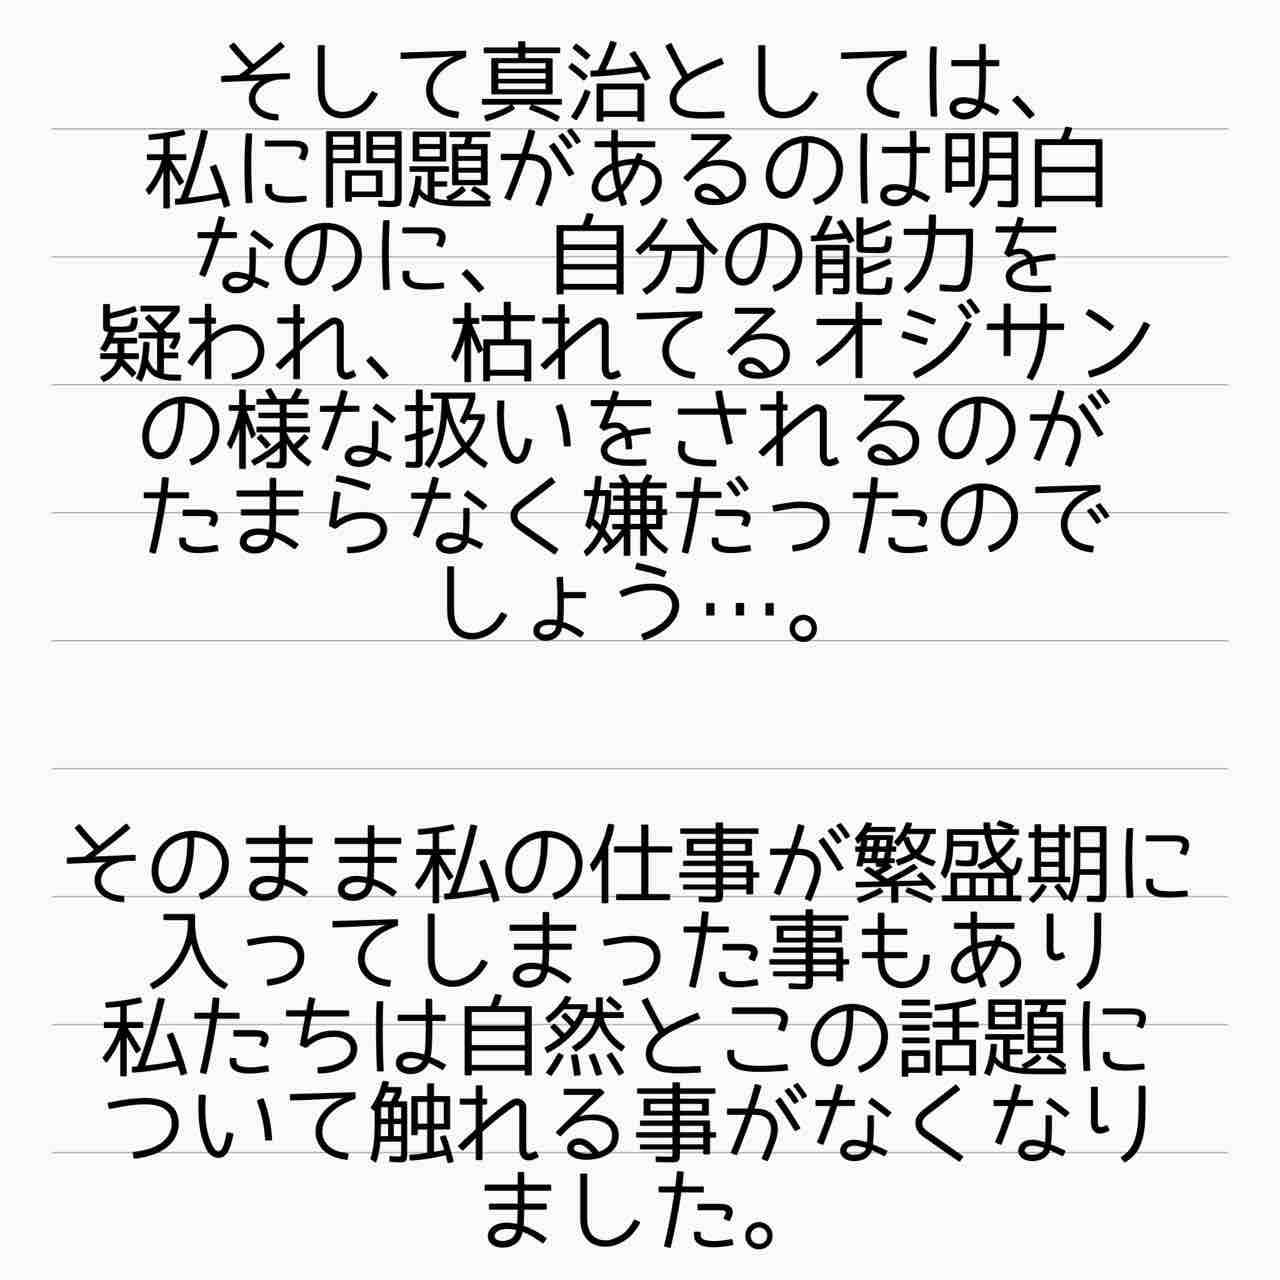 そして真治としては、
私に問題があるのは明白
なのに、自分の能力を
疑われ、枯れてるオジサン
の様な扱いをされるのが
たまらなく嫌だったので
しょう…。
そのまま私の仕事が繁盛期に
入ってしまった事もあり
私たちは自然とこの話題に
ついて触れる事がなくなり
ました。